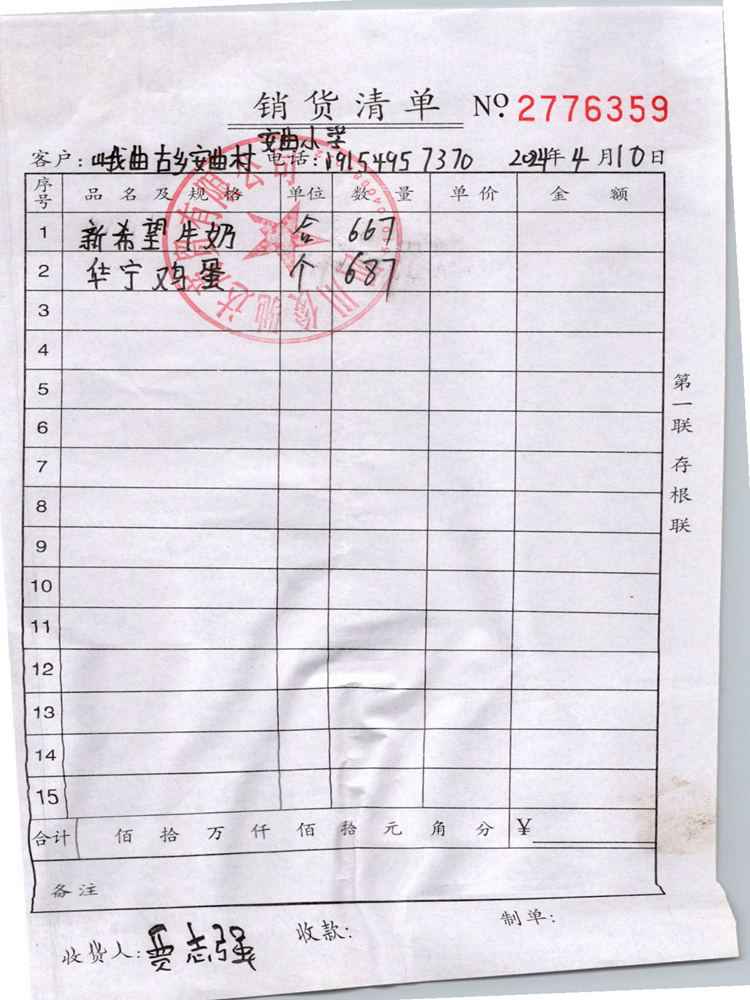 销货清单 No. 2776359
安曲小学
客户:哦曲古乡安曲村 电话:19154957370 2024年4月10日
序号 品名及规格 单位 数量 单价 金额
1 新希望牛奶 合 667
2 华宁鸡蛋 个 687
3
4
5
6
7
8
9
10
11
12
13
14
15
合计 佰 拾 万 仟 佰 拾 元 角 分 ¥
备注
收货人:贾志强 收款: 制单:
第一联 存根联